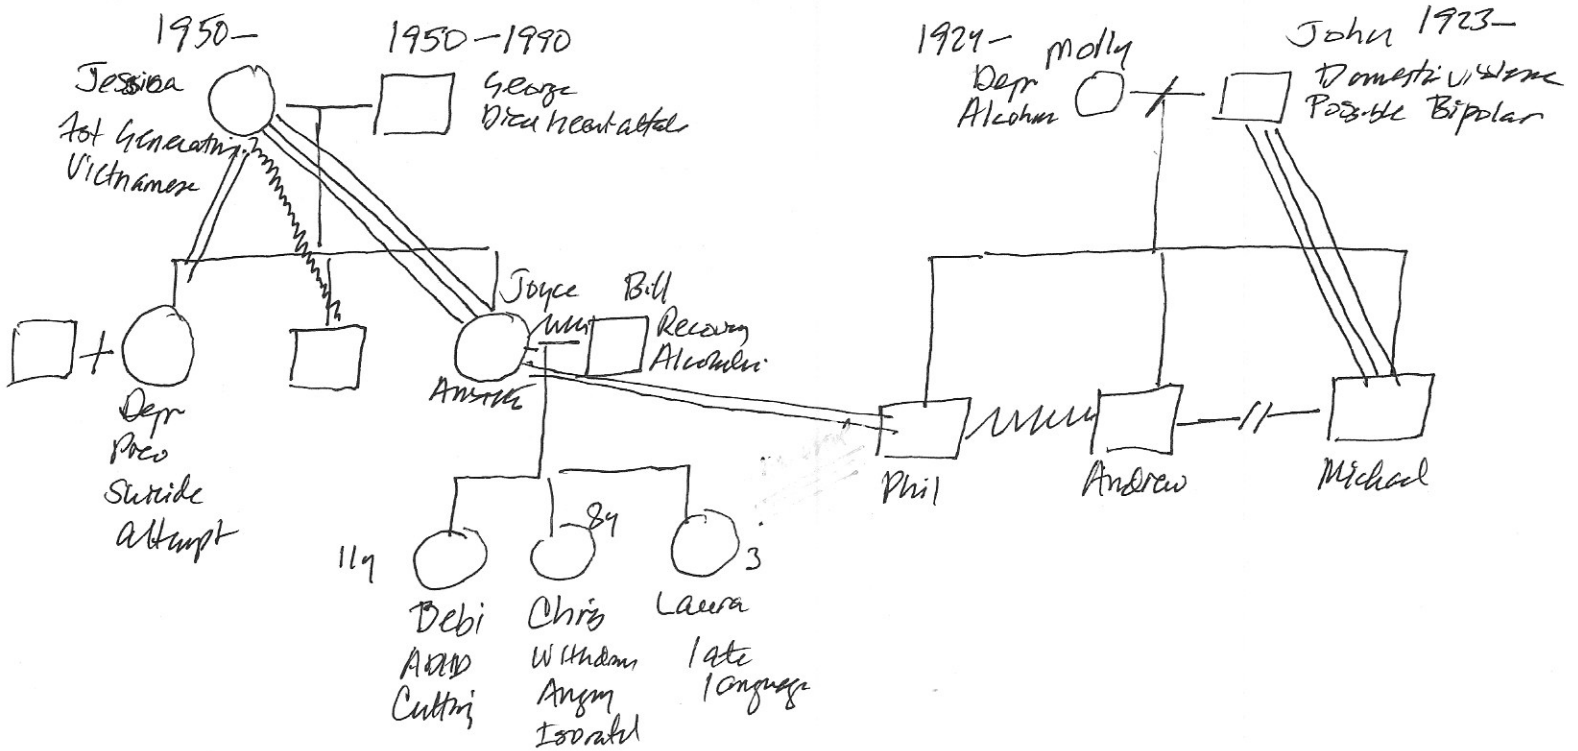 1950-
Jessica
1st Generation
Vietnamese
1950-1990
George
Died heart attack
1924-
Molly
Depr
Alcohm
John 1923-
Domestic violence
Possible Bipolar
Depr
Prev
Suicide
Attempt
Joyce
Bill
Recovery
Alcoholic
Phil
Andrew
Michael
11y
Debi
ADHD
Cutting
8y
Chris
Withdrawn
Angry
Isolated
3
Laura
late
language